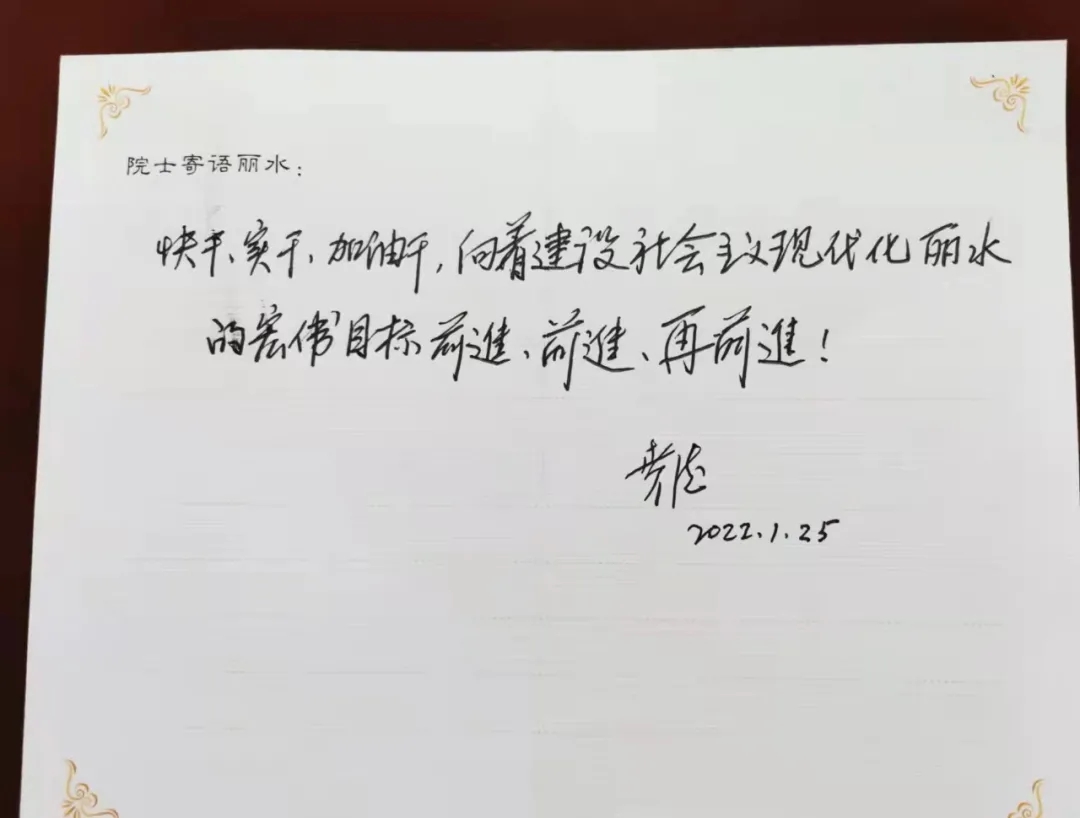 院士寄语丽水：
快干、实干、加油干，向着建设社会主义现代化丽水
的宏伟目标前進、前進、再前進！
2022.1.25